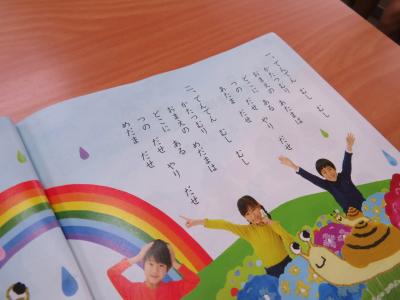 一、でんでん　むし　むし
かたつむり
おまえの　あたまは
どこに　ある
つの　だせ　やり　だせ
あたま　だせ
二、でんでん　むし　むし
かたつむり
おまえの　めだまは
どこに　ある
つの　だせ　やり　だせ
めだま　だせ